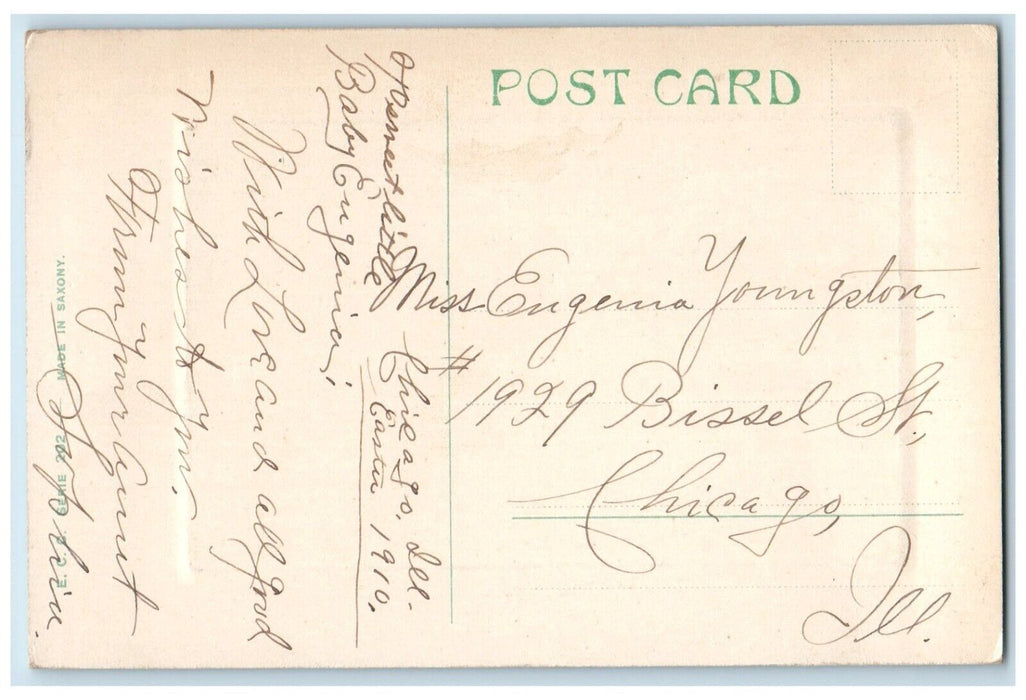 POST CARD
Chicago, Ill.
Easter 1910.
To sweet little
Baby Eugenia;
With Love and all good
wishes to you.
From your Aunt
Sophie.
Miss Eugenia Youngston,
# 1929 Bissel St,
Chicago,
Ill.
SERIE 202 MADE IN SAXONY.